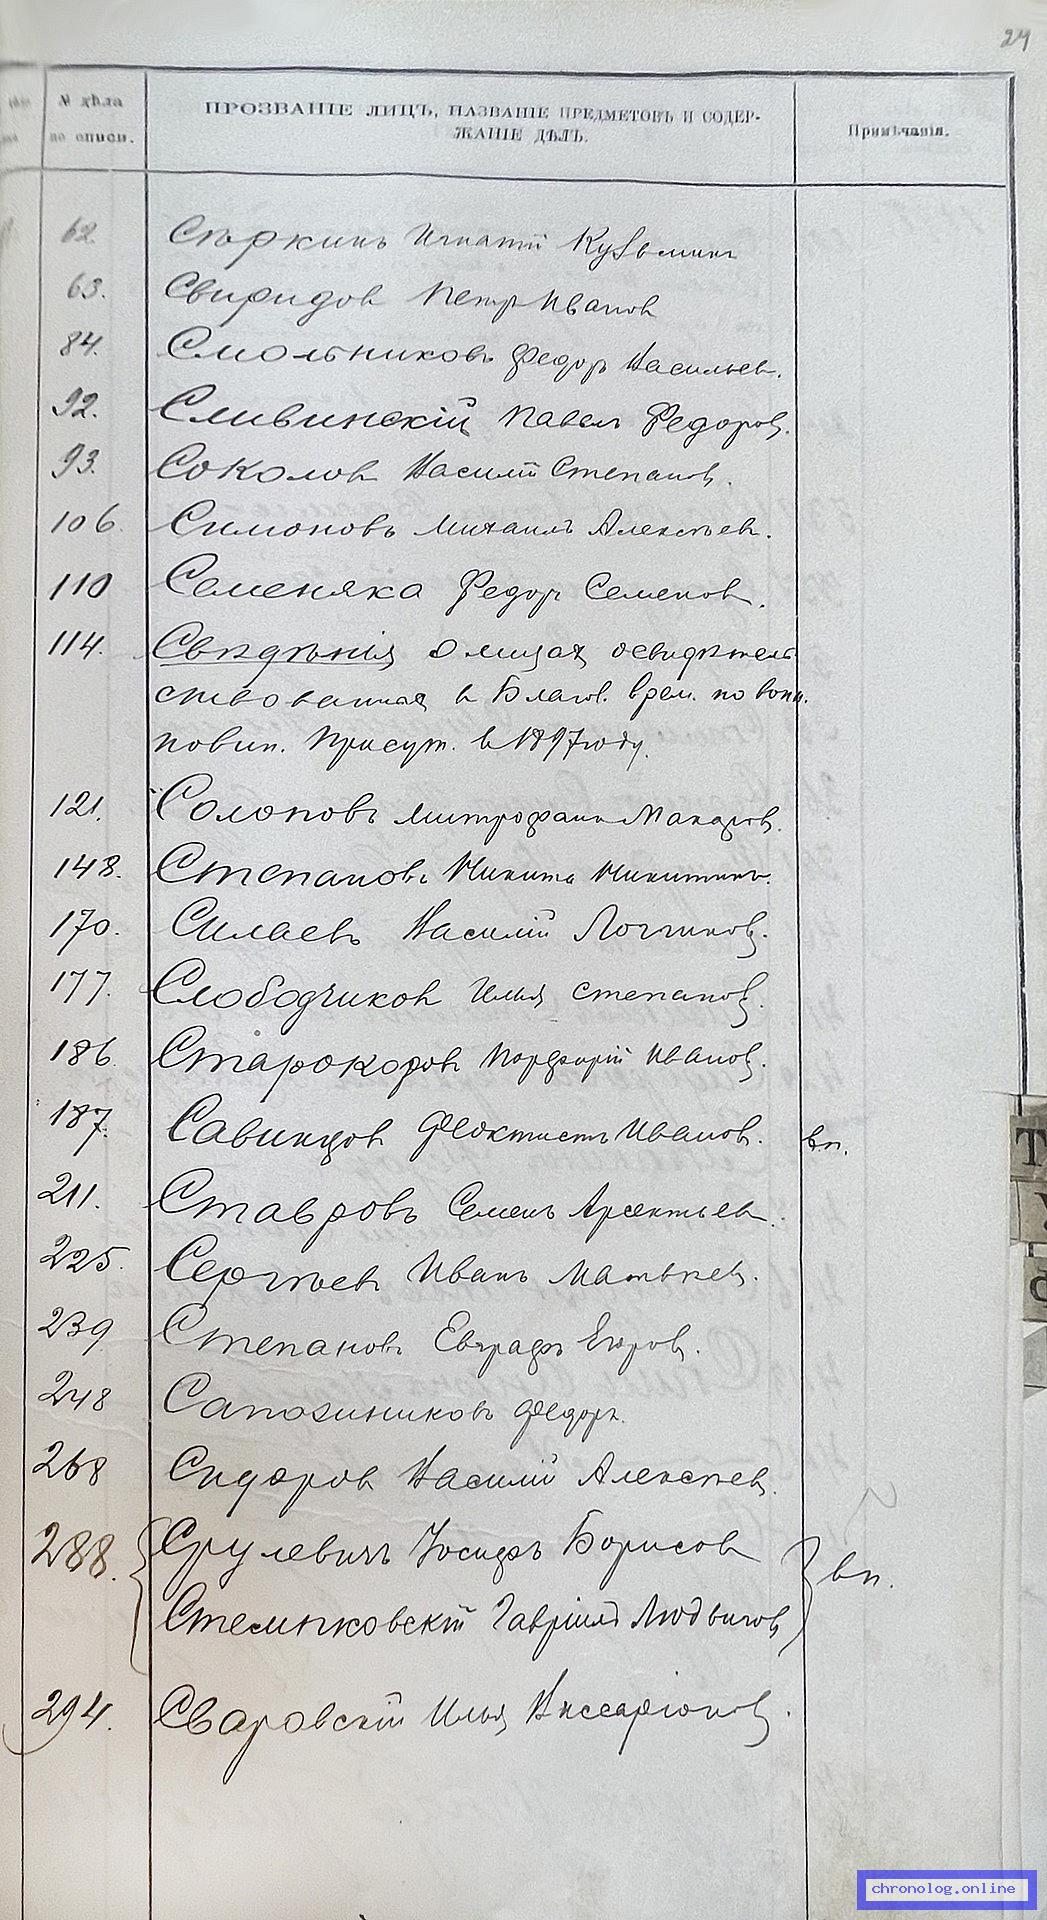 24
№ дѣла
по описи.
ПРОЗВАНІЕ ЛИЦЪ, НАЗВАНІЕ ПРЕДМЕТОВЪ И СОДЕР-
ЖАНІЕ ДѢЛЪ.
Примѣчанія.
62. Сѣркинъ Игнатій Кузьминъ
63. Свиридовъ Петръ Ивановъ
84. Смольниковъ Федоръ Васильев.
92. Сливинскій Павелъ Федоров.
93. Соколовъ Василій Степанов.
106. Симоновъ Михаилъ Алексѣев.
110 Семеняка Федоръ Семенов.
114. Свѣдѣнія о лицах освидѣтель
ствованная в Благов. врем. по воин.
повин. Присут. в 1897 году.
121. Солоповъ Митрофанъ Макаров.
148. Степановъ Никита Никитинъ.
170. Силаевъ Василій Логинов.
177. Слободчиковъ Илья Степанов.
186. Старокоровъ Порфирій Иванов.
187. Савинцовъ Феоктистъ Иванов. вп.
211. Ставровъ Семенъ Арсентьев.
225. Сергѣевъ Иванъ Матвѣев.
239 Степановъ Евграфъ Егоров.
248 Сапожниковъ Федоръ.
268 Сидоровъ Василій Алексѣев.
288. Срулевичъ Іосифъ Борисовъ вп.
Стемпковскій Гавріилъ Людвигов.
294. Сваровскій Илья Виссаріонов.
chronolog.online